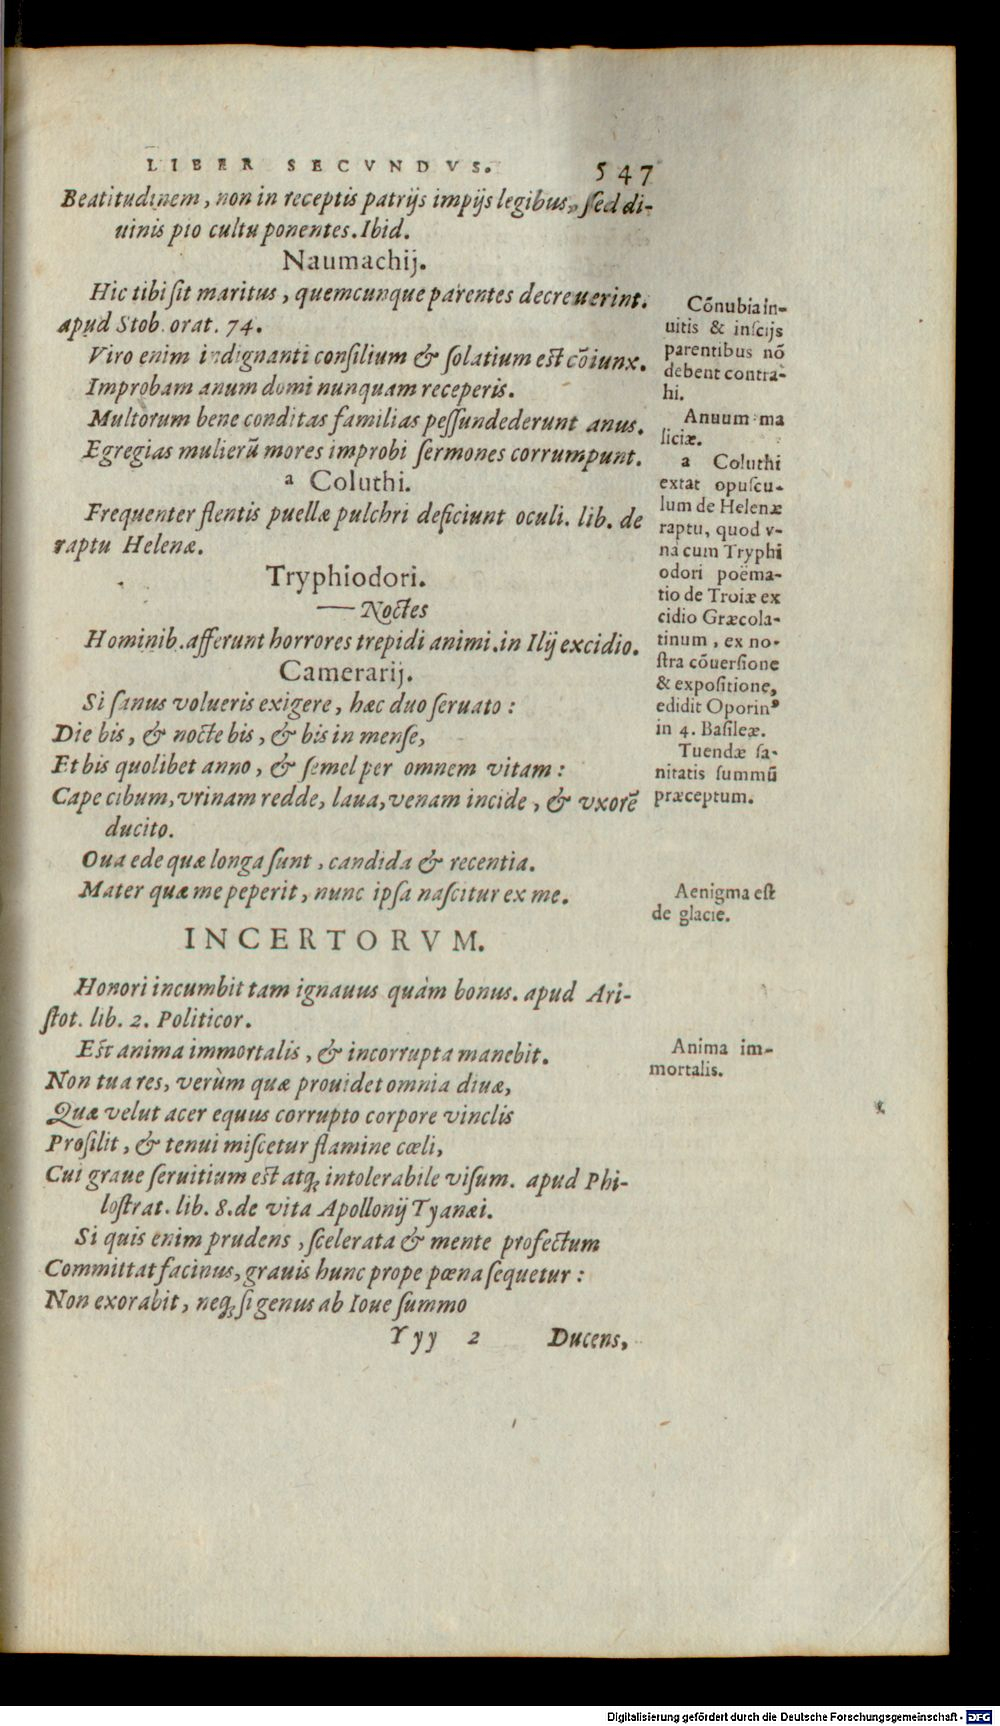 LIBER SECVNDVS. 547
Beatitudinem, non in receptis patrijs impijs legibus, sed di-
uinis pio cultu ponentes. Ibid.
Naumachij.
Hic tibi sit maritus, quemcunque parentes decreuerint.
apud Stob. orat. 74.
Viro enim indignanti consilium & solatium est cōiunx.
Improbam anum domi nunquam receperis.
Multorum bene conditas familias pessundederunt anus.
Egregias mulierū mores improbi sermones corrumpunt.
a Coluthi.
Frequenter flentis puellæ pulchri deficiunt oculi. lib. de
raptu Helenæ.
Tryphiodori.
— Noctes
Hominib. afferunt horrores trepidi animi. in Ilij excidio.
Camerarij.
Si sanus volueris exigere, hæc duo seruato:
Die bis, & nocte bis, & bis in mense,
Et bis quolibet anno, & semel per omnem vitam:
Cape cibum, vrinam redde, laua, venam incide, & vxorē
ducito.
Oua ede quæ longa sunt, candida & recentia.
Mater quæ me peperit, nunc ipsa nascitur ex me.
INCERTORVM.
Honori incumbit tam ignauus quàm bonus. apud Ari-
stot. lib. 2. Politicor.
Est anima immortalis, & incorrupta manebit.
Non tua res, verùm quæ prouidet omnia diuæ,
Quæ velut acer equus corrupto corpore vinclis
Prosilit, & tenui miscetur flamine cœli,
Cui graue seruitium est atq; intolerabile visum. apud Phi-
lostrat. lib. 8. de vita Apollonij Tyanæi.
Si quis enim prudens, scelerata & mente profectum
Committat facinus, grauis hunc prope pœna sequetur:
Non exorabit, neq; si genus ab Ioue summo
Yyy 2 Ducens,
Cōnubia in-
uitis & inscijs
parentibus nō
debent contra-
hi.
Anuum ma
liciæ.
a Coluthi
extat opuscu-
lum de Helenæ
raptu, quod v-
na cum Tryphi
odori poëma-
tio de Troiæ ex
cidio Græcola-
tinum, ex no-
stra cōuersione
& expositione,
edidit Oporinꝰ
in 4. Basileæ.
Tuendæ sa-
nitatis summū
præceptum.
Aenigma est
de glacie.
Anima im-
mortalis.
Digitalisierung gefördert durch die Deutsche Forschungsgemeinschaft - DFG